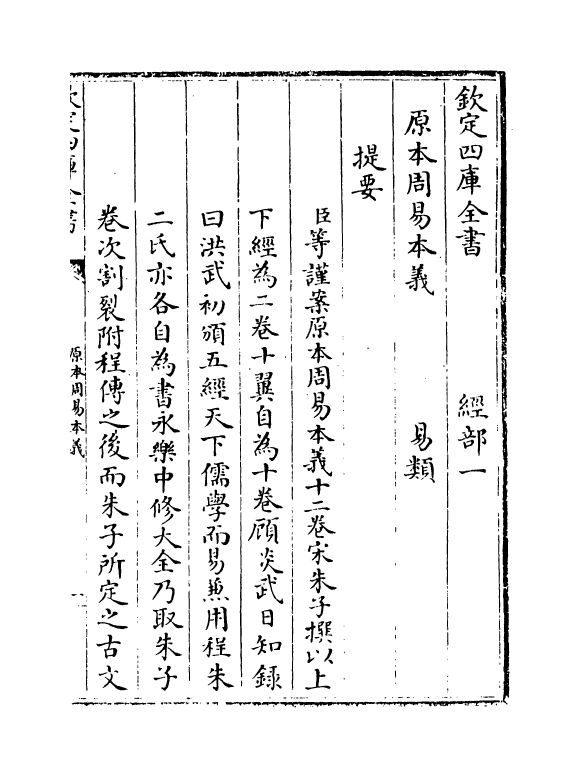 欽定四庫全書　經部一
原本周易本義　易類
提要
臣等謹案原本周易本義十二卷宋朱子撰以上
下經為二卷十翼自為十卷顧炎武日知錄
曰洪武初頒五經天下儒學而易兼用程朱
二氏亦各自為書永樂中修大全乃取朱子
卷次割裂附程傳之後而朱子所定之古文
欽定四庫全書
原本周易本義
一